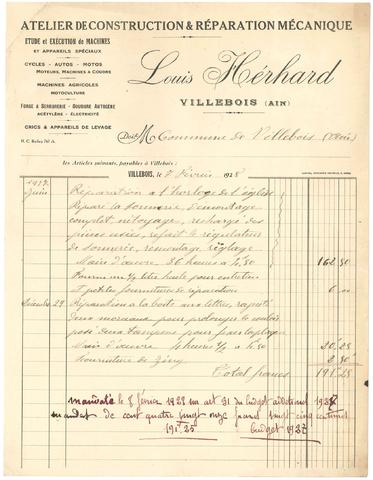 ATELIER DE CONSTRUCTION & RÉPARATION MÉCANIQUE
ETUDE et EXÉCUTION de MACHINES
ET APPAREILS SPÉCIAUX
CYCLES - AUTOS - MOTOS
MOTEURS, MACHINES A COUDRE
MACHINES AGRICOLES
MOTOCULTURE
FORGE & SERRURERIE - SOUDURE AUTOGÈNE
ACÉTYLÈNE - ÉLECTRICITÉ
CRICS & APPAREILS DE LEVAGE
R. C. Belley
Louis Hérhard
VILLEBOIS (AIN)
Doit M Commune de Villebois (Ain)
les Articles suivants, payables à Villebois :
VILLEBOIS, le Février 1928
1927
Juin Réparation a l'horloge de l'église
Réparé la sonnerie, démontage
complet nitoyage, rechargé des
pièces usées, refait le régulateur
de sonnerie, remontage réglage
Main d'œuvre 36 heures a 4,50 162 50
Fourni un 1/2 litre huile pour entretien
et petites fourniture de réparation 6 00
Décembre 29 Réparation a la boit aux lettres, rapporté
deux morceaux pour prolonger le couloir
posé deux tampons pour
Main d'œuvre 4 heures 1/2 a 4.50 20 25
Fourniture de Zing 2 50
Total francs 191 25
mandaté le 8 février 1928 sur art 31 du budget additionnel
mandat de cent quatre vingt onze francs vingt cinq centimes
191f 25 budget 1927